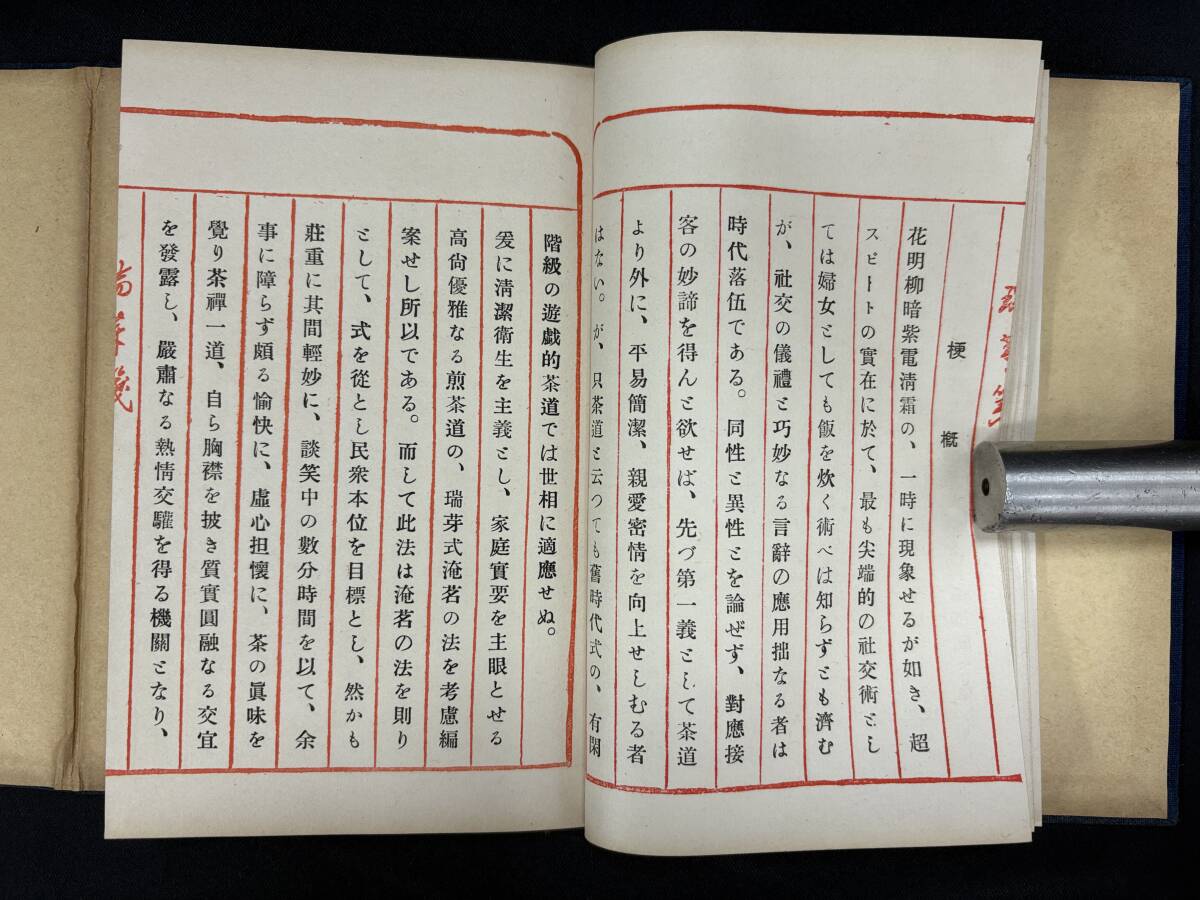 梗概
花明柳暗紫電淸霜の、一時に現象せるが如き、超
スピートの實在に於て、最も尖端的の社交術とし
ては婦女としても飯を炊く術べは知らずとも濟む
が、社交の儀禮と巧妙なる言辭の應用拙なる者は
時代落伍である。同性と異性とを論ぜず、對應接
客の妙諦を得んと欲せば、先づ第一義として茶道
より外に、平易簡潔、親愛密情を向上せしむる者
はない。が、只茶道と云つても舊時代式の、有閑
階級の遊戲的茶道では世相に適應せぬ。
爰に淸潔衛生を主義とし、家庭實要を主眼とせる
高尙優雅なる煎茶道の、瑞芽式淹茗の法を考慮編
案せし所以である。而して此法は淹茗の法を則り
として、式を從とし民衆本位を目標とし、然かも
莊重に其間輕妙に、談笑中の數分時間を以て、余
事に障らず頗る愉快に、虛心担懷に、茶の眞味を
覺り茶禪一道、自ら胸襟を披き質實圓融なる交宜
を發露し、嚴肅なる熱情交驩を得る機關となり、